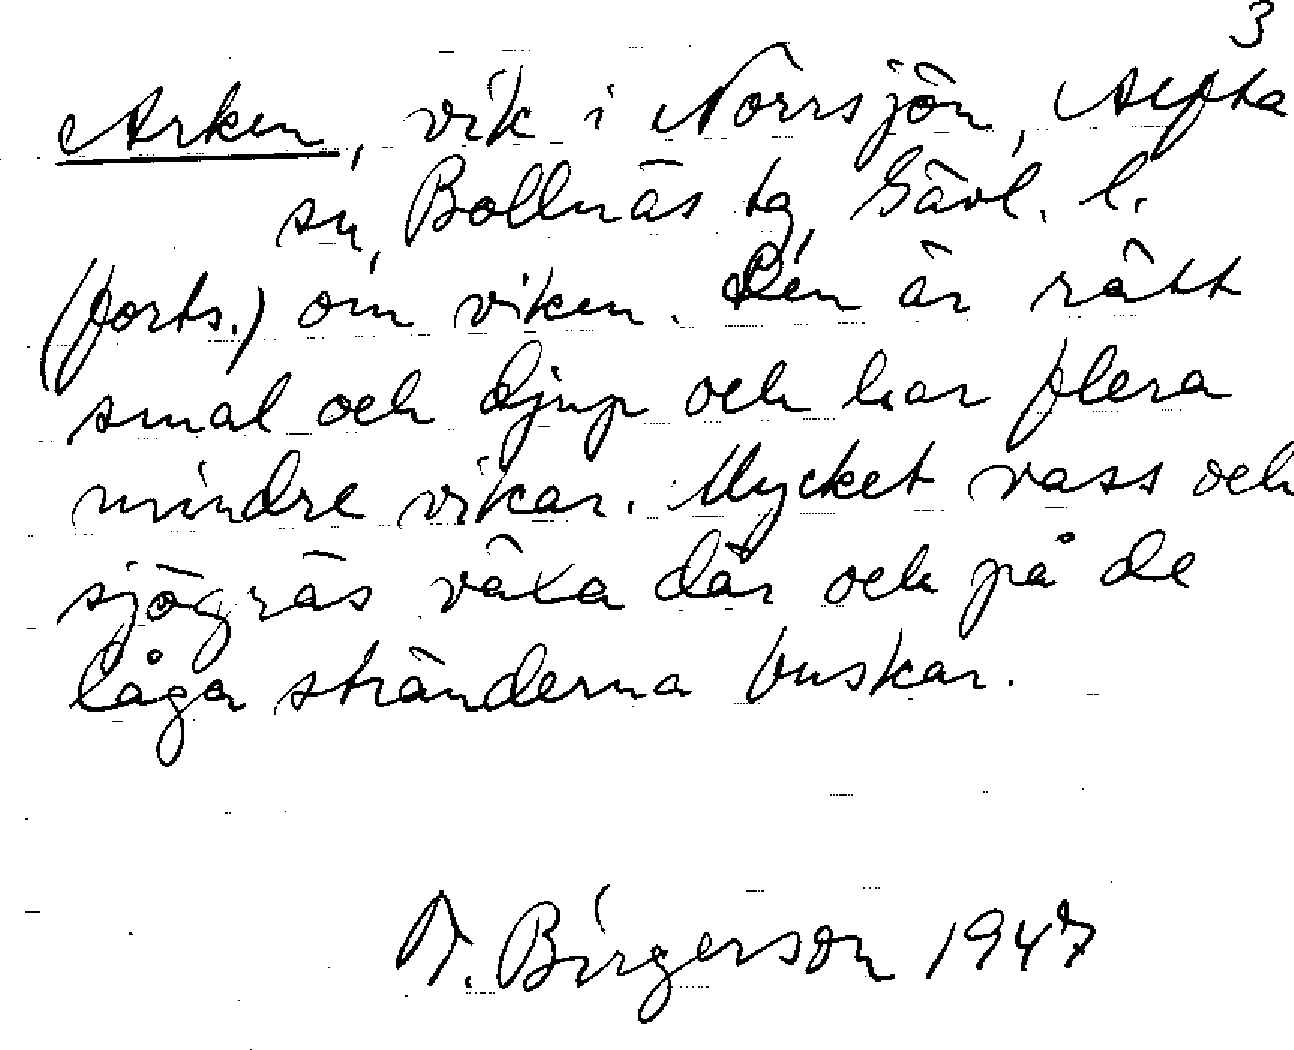 3
Arken, vik i Norrsjön, Alfta
sn, Bollnäs tg, Gävl. l.
(forts.) om viken. Den är rätt
smal och djup och har flera
mindre vikar. Mycket vass och
sjögräs växa där och på de
låga stränderna buskar.
Birgerson 1947